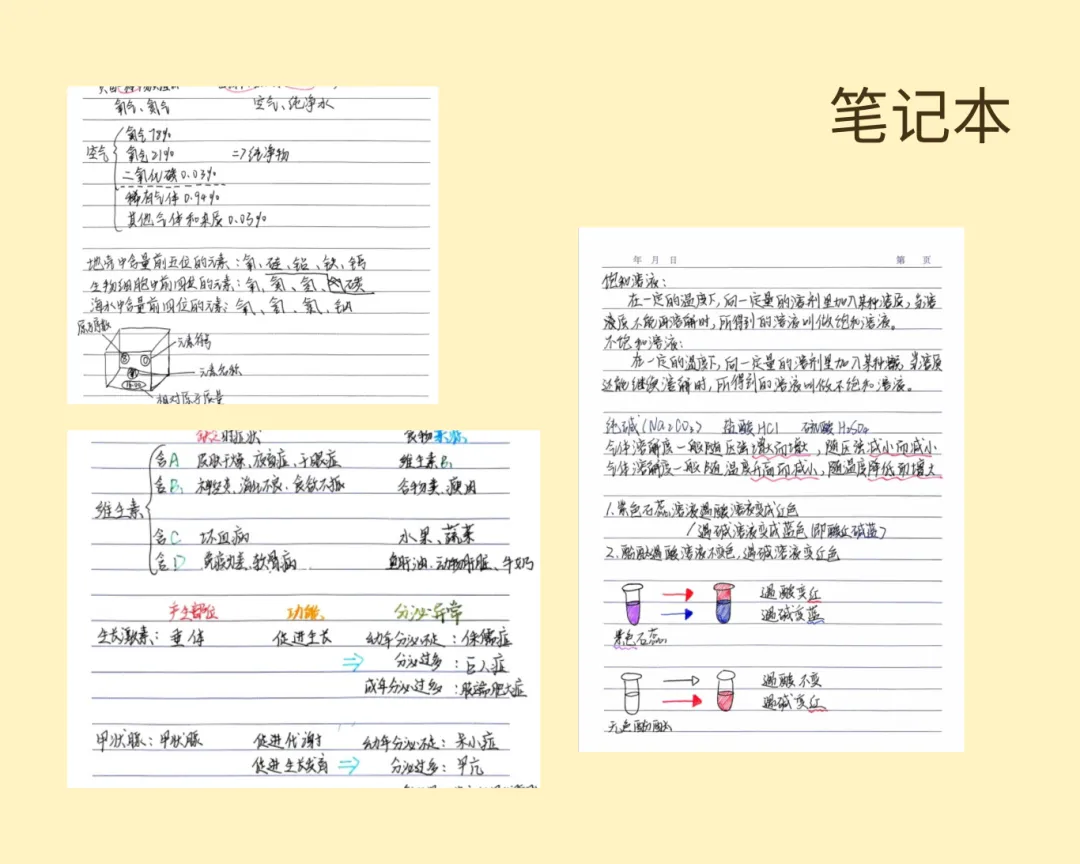 笔记本
氧气、氮气
空气、纯净水
空气
氮气78%
氧气21% => 纯净物
二氧化碳0.03%
稀有气体0.94%
其他气体和杂质0.03%
地壳中含量前五位的元素：氧、硅、铝、铁、钙
生物细胞中前四位的元素：氧、氮、氢、碳
海水中含量前四位的元素：氧、氢、氯、钠
原子序数
元素符号
元素名称
相对原子质量
缺乏时症状 食物来源
维生素
含A 皮肤干燥、夜盲症、干眼症 维生素B₁
含B₁ 神经炎、消化不良、食欲不振 谷物类、瘦肉
含C 坏血病 水果、蔬菜
含D 佝偻病 鱼肝油、动物肝脏、牛奶
产生部位 功能 分泌异常
生长激素：垂体 促进生长 幼年分泌不足：侏儒症
=> 分泌过多：巨人症
成年分泌过多：肢端肥大症
甲状腺：甲状腺 促进代谢 幼年分泌不足：呆小症
促进生长发育 => 分泌过多：甲亢
年 月 日 第 页
饱和溶液：
在一定的温度下，向一定量的溶剂里加入某种溶质，当溶
液质不能再溶解时，所得到的溶液叫做饱和溶液。
不饱和溶液：
在一定的温度下，向一定量的溶剂里加入某种溶质，当溶质
还能继续溶解时，所得到的溶液叫做不饱和溶液。
纯碱(Na₂CO₃) 盐酸HCl 硫酸H₂SO₄
气体溶解度一般随压强增大而增大，随压强减小而减小
气体溶解度一般随温度升高而减小，随温度降低而增大
1.紫色石蕊溶液遇酸溶液变成红色
遇碱溶液变成蓝色(即酸红碱蓝)
2.酚酞遇酸溶液不变色，遇碱溶液变红色
遇酸变红
遇碱变蓝
紫色石蕊
遇酸不变
遇碱变红
无色酚酞